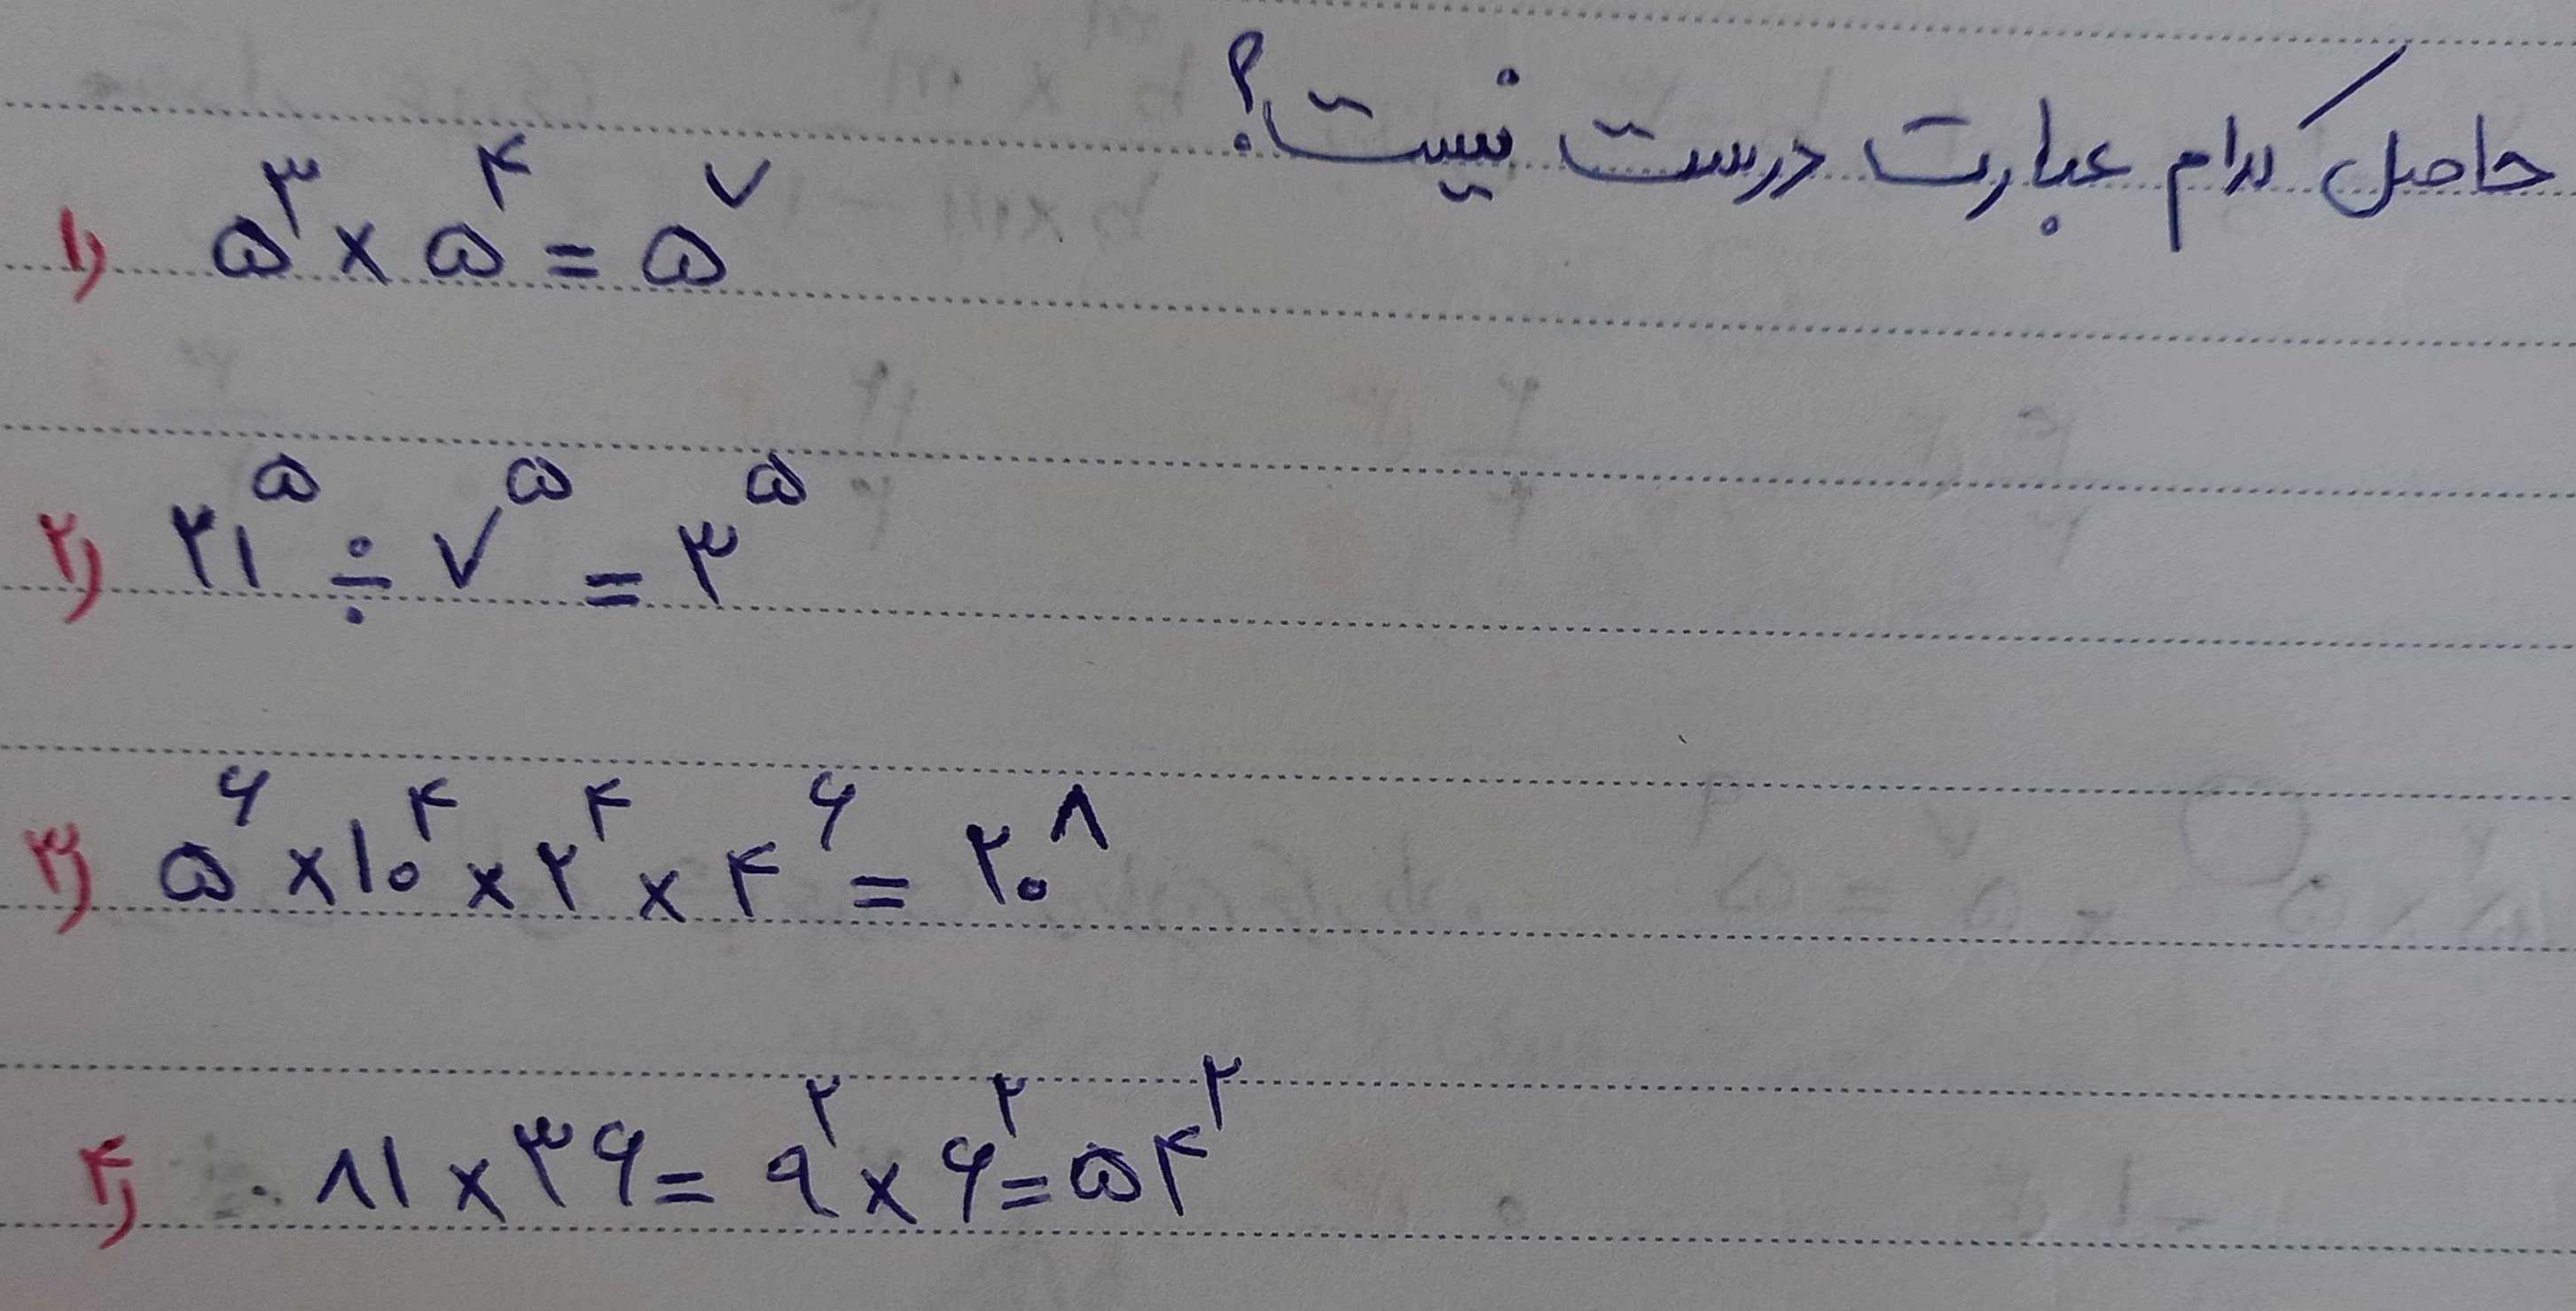 حاصل کدام عبارت درست نیست؟
۱) ۵^۳ × ۵^۴ = ۵^۷
۲) ۲۱^۵ ÷ ۷^۵ = ۳^۵
۳) ۵^۶ × ۱۰^۴ × ۲^۴ × ۴^۶ = ۲۰^۸
۴) ۸۱ × ۳۶ = ۹^۲ × ۶^۲ = ۵۴^۲